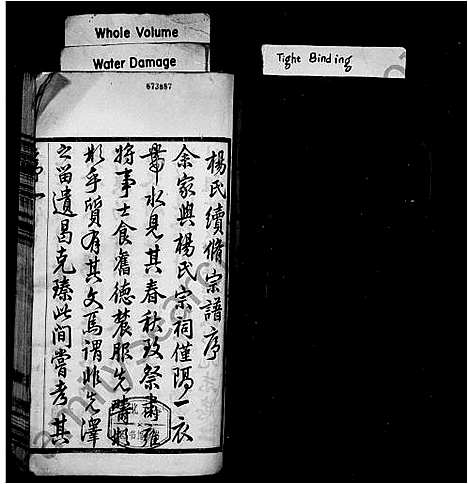 Whole Volume
Water Damage
Tight Binding
673887
楊氏續脩宗譜序
余家與楊氏宗祠僅隔一衣
帶水見其春秋致祭肅雍
將事士食舊德農服先疇彬
彬乎質有其文焉謂非先澤
之留遺曷克臻此間嘗考其